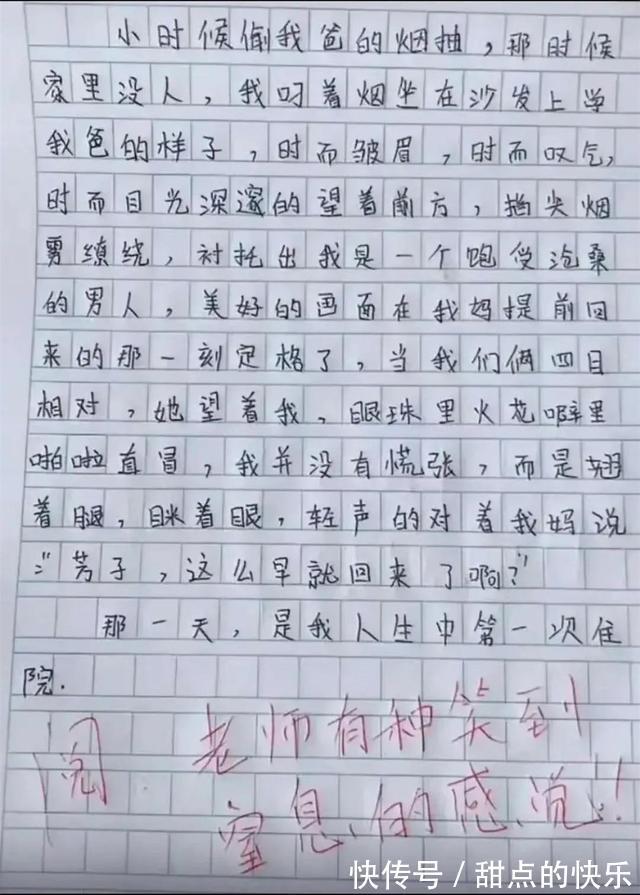 小时候偷我爸的烟抽，那时候
家里没人，我叼着烟坐在沙发上学
我爸的样子，时而皱眉，时而叹气，
时而目光深邃的望着前方，指尖烟
雾缭绕，衬托出我是一个饱受沧桑
的男人，美好的画面在我妈提前回
来的那一刻定格了，当我们俩四目
相对，她望着我，眼珠里火花噼里
啪啦直冒，我并没有慌张，而是翘
着腿，眯着眼，轻声的对着我妈说
：“芳子，这么早就回来了啊？”
那一天，是我人生中第一次住
院.
阅 老师有种笑到
窒息的感觉!!
快传号/甜点的快乐